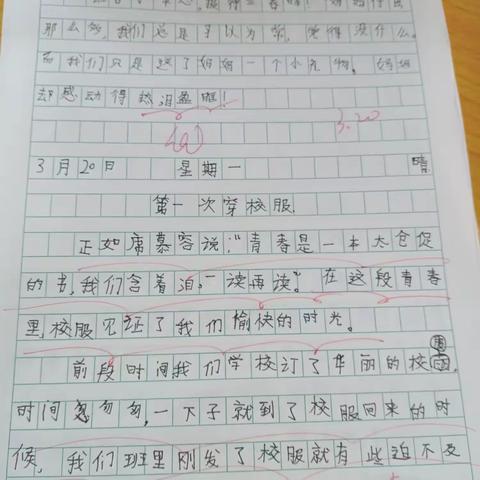 那么多,我们总是予以为常,觉得没什么。
而我们只是送了妈妈一个小礼物,妈妈
却感动得热泪盈眶!
3.20
3月20日 星期一 晴
第一次穿校服
正如席慕容说:“青春是一本太仓促
的书,我们含着泪,一读再读”。在这段青春
里,校服见证了我们愉快的时光。
前段时间我们学校订了华丽的校
时间忽匆匆,一下子就到了校服回来的时
候,我们班里刚发了校服就有些迫不及